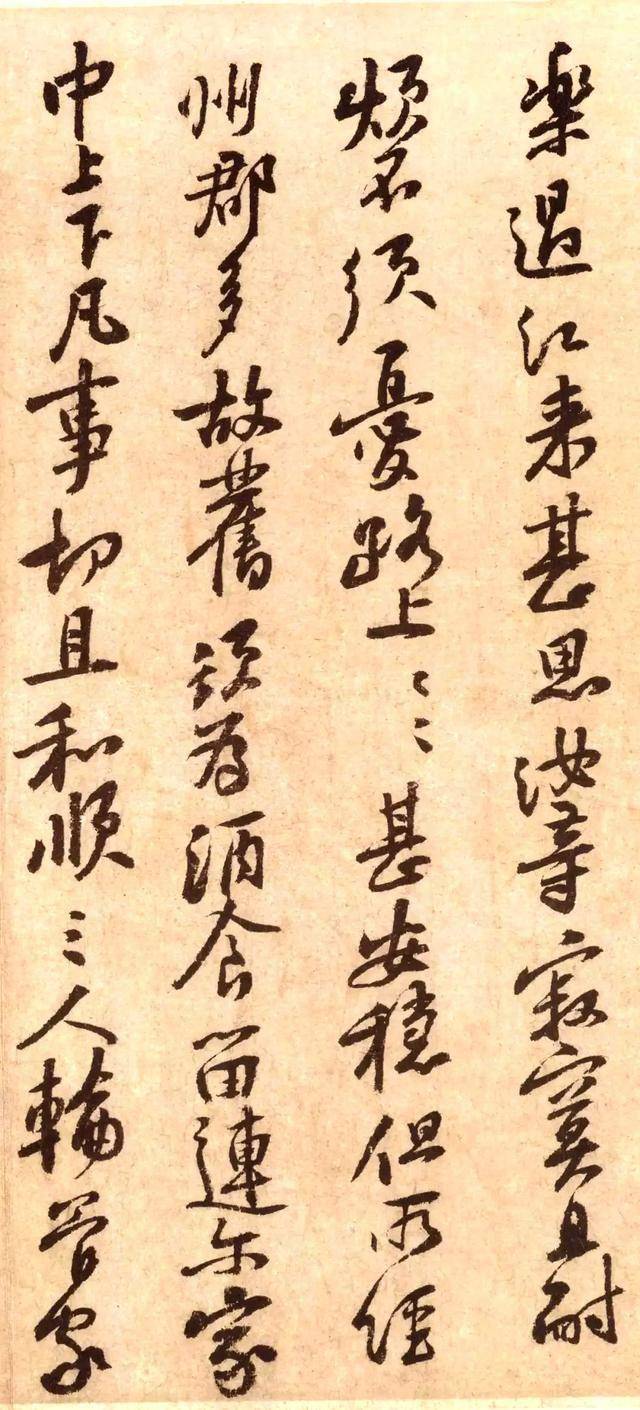 樂過江来甚思汝等寂寞且耐
煩不須憂路上〻〻甚安穩但所經
州郡多故舊須為酒食留連尓家
中上下凡事切且和順三人輪管家